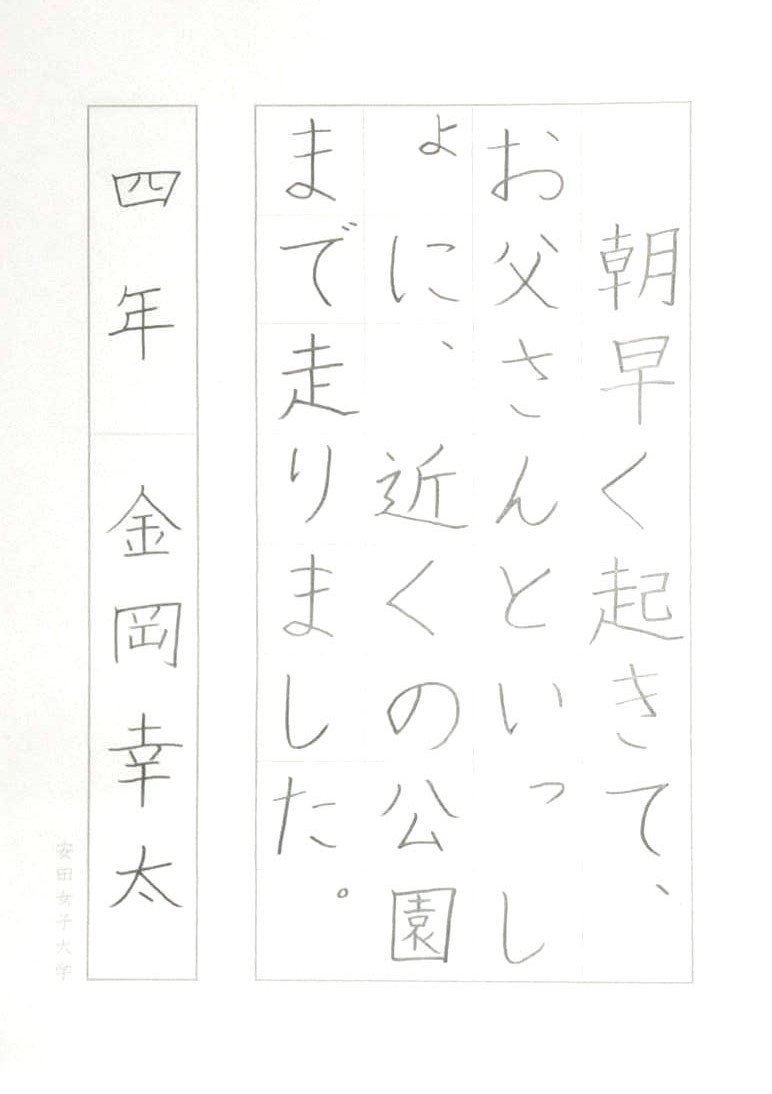 朝早く起きて、
お父さんといっし
ょに、近くの公園
まで走りました。
四年 金岡幸太
安田女子大学